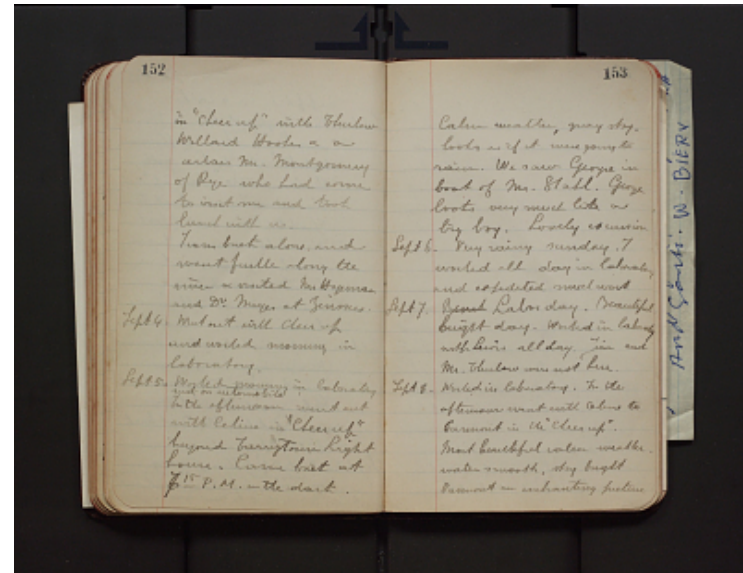 152
in "Cheer up" with Thurlow
Willard Hooker & a
certain Mr. Montgomery
of Rye who had come
to visit me and took
lunch with us.
I came back alone, and
went further along the
river & visited Mr Hegeman
and Dr. Meyer at
Sept 4. Went out with Cheer up
and worked morning in
laboratory.
Sept 5. Worked morning in laboratory
and on automobile
In the afternoon went out
with Celine in "Cheer up"
beyond Tarrytown Light
house. Came back at
7 15 P.M. in the dark.
153
Calm weather, grey sky.
looks as if it were going to
rain. We saw George in
boat of Mr. Stahl. George
looks very much like a
big boy. Lovely excursion
Sept 6. Very rainy sunday. I
worked all day in laboratory
and expedited much work
Sept 7. Labor day. Beautiful
bright day. Worked in laboratory
with Lewis all day. Jim and
Mr. Thurlow were not here.
Sept 8. Worked in laboratory. In the
afternoon went with Celine to
Piermont in the "Cheer up".
Most beautiful calm weather.
water smooth, sky bright
Piermont an enchanting picture
And W. BIERY